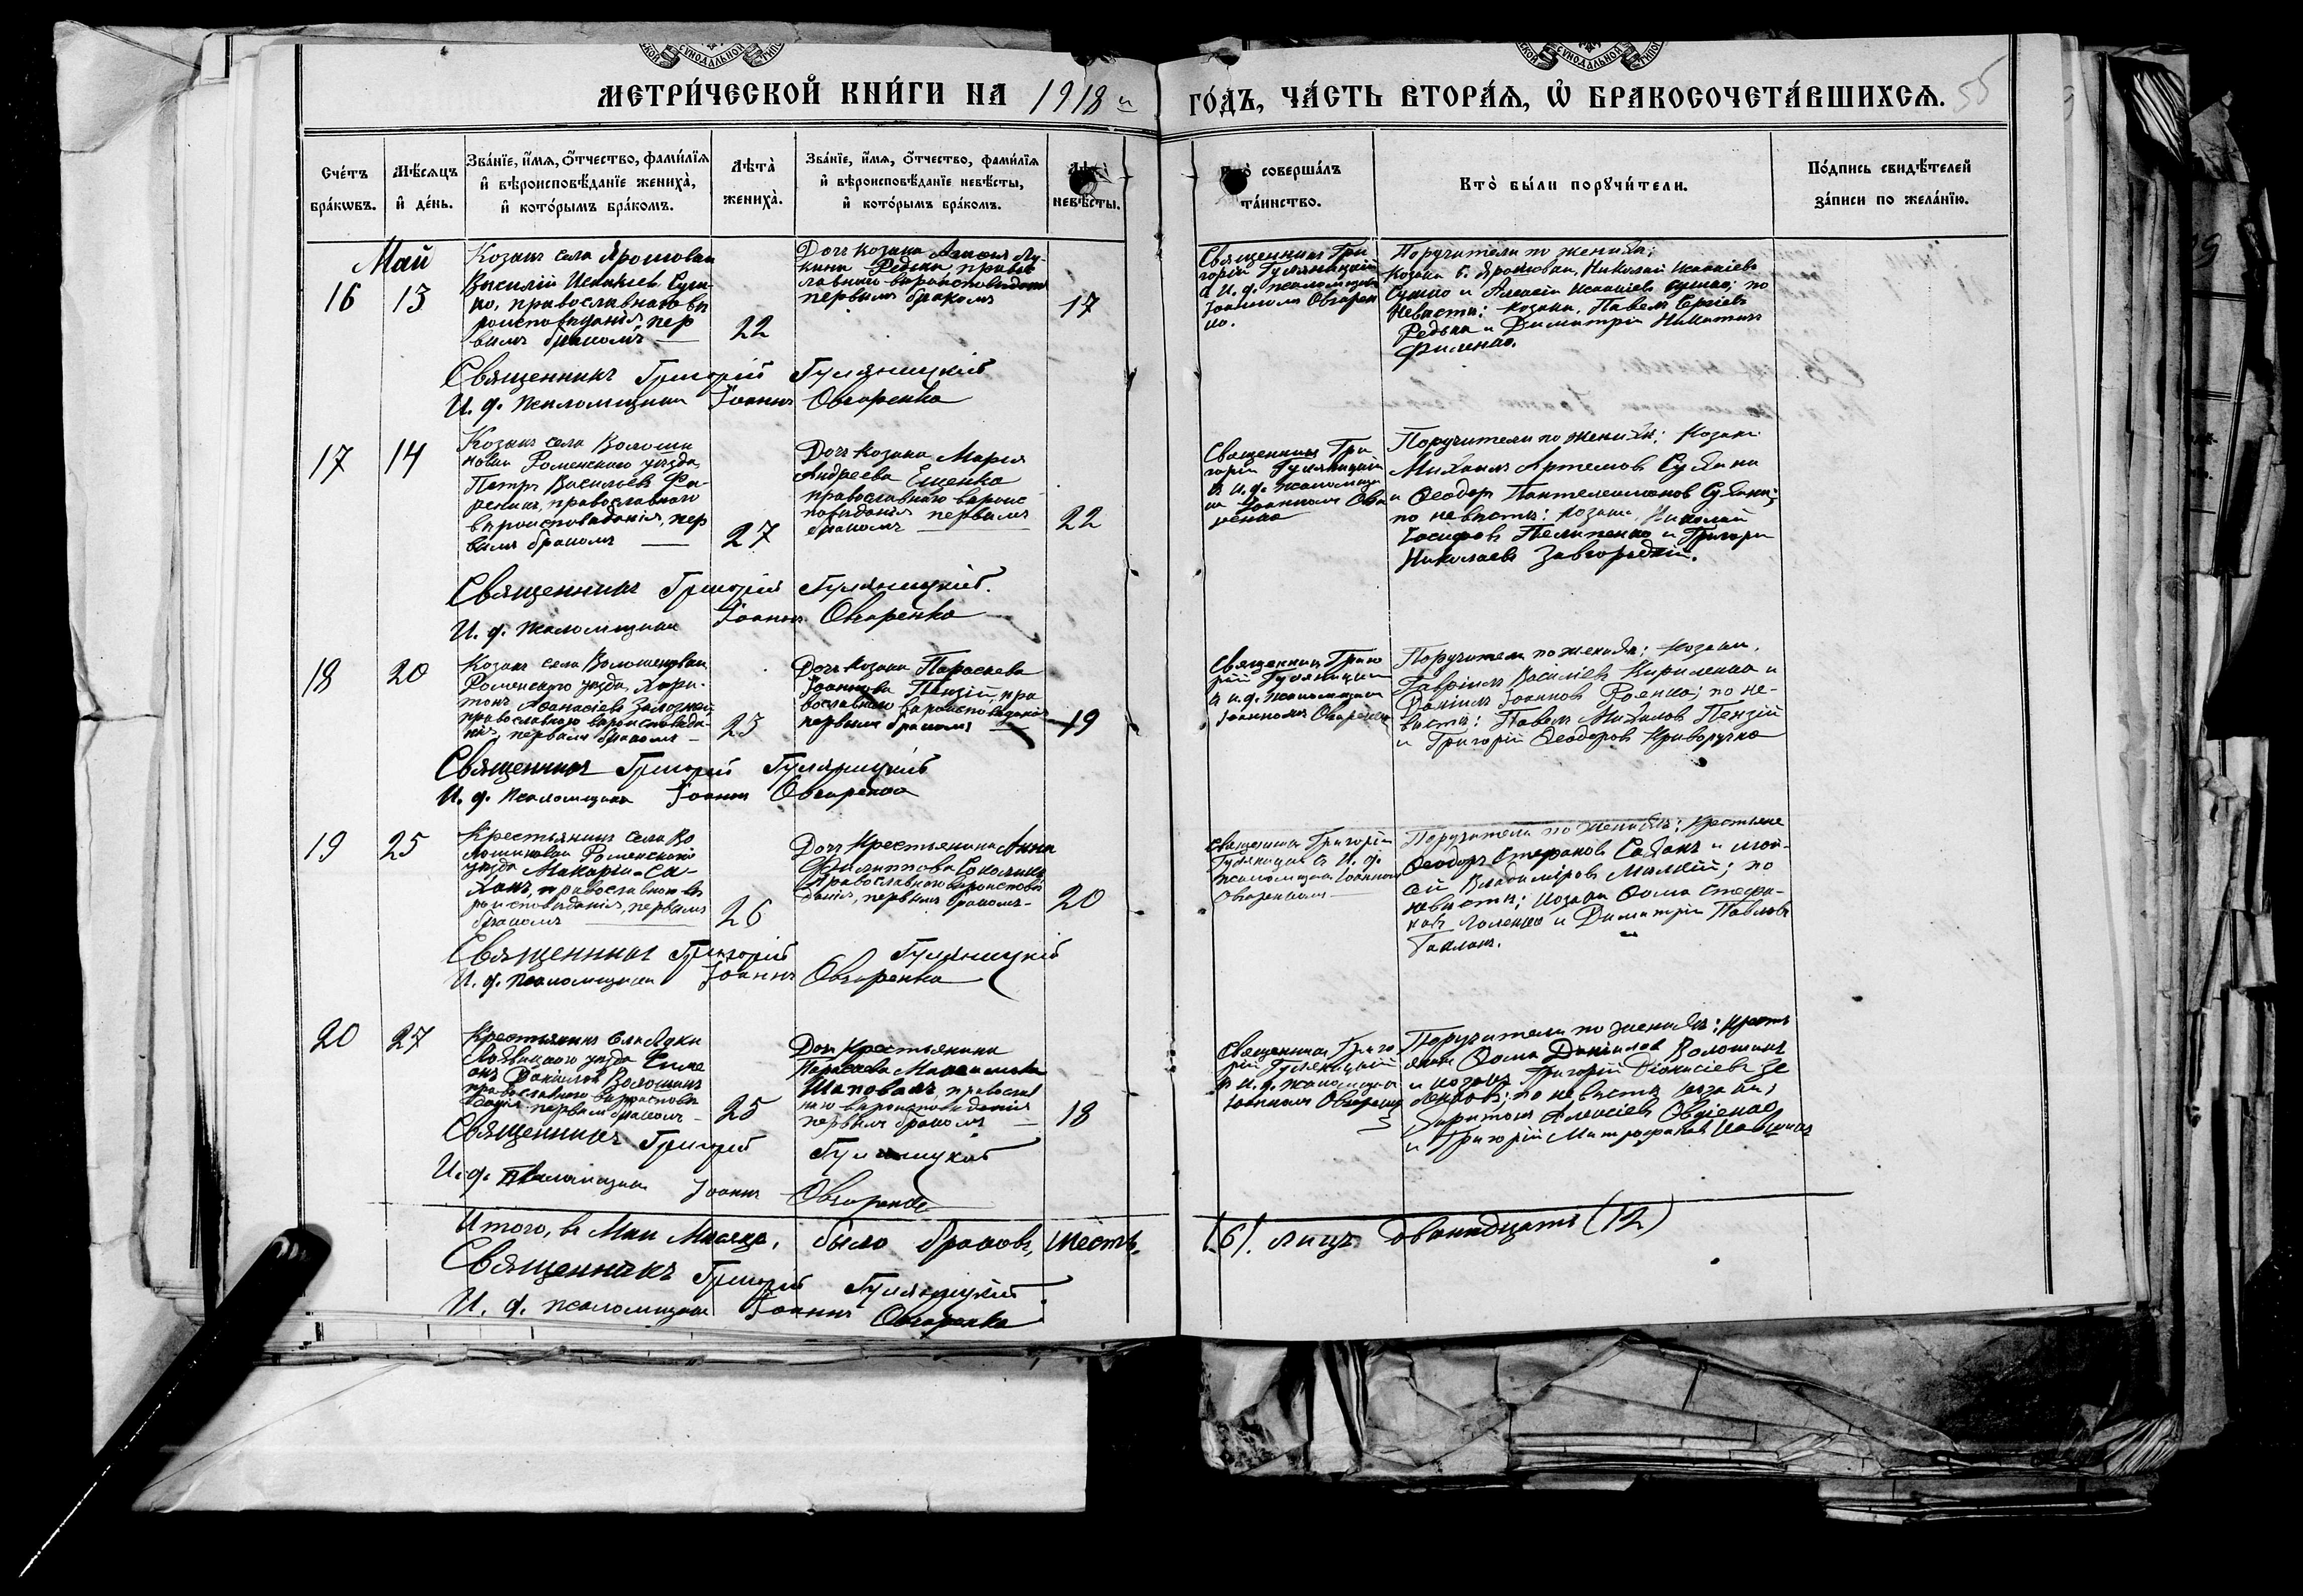 МЕТРИ́ЧЕСКОЙ КНИ́ГИ НА 1918 й ГО́ДЪ, ЧА́СТЬ ВТОРА́Я, Ѽ БРАКОСОЧЕТА́ВШИХСЯ.
Сче́тъ бра́кѡвъ.
Мѣ́сяцъ и де́нь.
Зва́нїе, и́мя, ѻ́тчество, фами́лїя и вѣроисповѣ́данїе жениха̀, и кото́рымъ бра́комъ.
Лѣта̀ жениха̀.
Зва́нїе, и́мя, ѻ́тчество, фами́лїя и вѣроисповѣ́данїе невѣ́сты, и кото́рымъ бра́комъ.
невѣ́сты.
соверша́лъ та́инство.
Кто̀ бы́ли порꙋчи́тели.
По́дпись свидѣ́телей за́писи по жела́нїю.
Май
16
13
Козакъ села Ярошовки
Василій
православнаго вѣ
роисповѣданія, пер
вымъ бракомъ
22
Дочь козака
Редька, право
славнаго вѣроисповѣданія
первымъ бракомъ
17
Священникъ Гри
горій Гуляницкій
и И. д. псаломщика
Іоаннъ Овчарен
ко.
Поручители по женихѣ:
козаки с. Ярошовки, Николай
и Алексій по
невѣстѣ: козаки, Павелъ Сергіевъ
Редька и Димитрій Никитинъ
Филенко.
Священникъ Григорій Гуляницкій
И. д. псаломщика Іоаннъ Овчаренко
17
14
Козакъ села Волоши
новки Роменскаго уѣзда
Петръ Васильевъ
православнаго
вѣроисповѣданія, пер
вымъ бракомъ
27
Дочь козака Марія
Андреева Ещенко
православнаго вѣроис
повѣданія первымъ
бракомъ
22
Священникъ Гри
горій Гуляницкій
и И. д. псаломщи
ка Іоаннъ Овча
ренко
Поручители по женихѣ: козаки
Михаилъ Артемовъ
и Ѳеодоръ Пантелеимоновъ
по невѣстѣ: козаки, Николай
Іосифовъ Пелипенко и Григорій
Николаевъ Завгородній.
Священникъ Григорій Гуляницкій.
И. д. псаломщика Іоаннъ Овчаренко
18
20
Козакъ села Волошиновки
Роменскаго уѣзда, Хари
тонъ Аѳанасіевъ
православнаго вѣроисповѣда
нія, первымъ бракомъ
23
Дочь козака Параскева
Іоаннова Пензій, пра
вославнаго вѣроисповѣданія
первымъ бракомъ
19
Священникъ Григо
рій Гуляницкій
и и.д. псаломщика
Іоаннъ Овчаренко
Поручители по женихѣ: козаки,
Гавріилъ Василіевъ Кириленко и
Даніилъ Іоанновъ Роенко; по не-
вѣстѣ: Павелъ Михайловъ Пензій
и Григорій Ѳеодоровъ Криворучко
Священникъ Григорій Гуляницкій
И. д. псаломщика Іоаннъ Овчаренко
19
25
Крестьянинъ села Во
лошиновки Роменскаго
уѣзда Макарій Са-
ханъ, православнаго вѣ
роисповѣданія, первымъ
бракомъ
26
Дочь крестьянина Анна
Филиппова
православнаго вѣроисповѣ
данія, первымъ бракомъ
20
Священникъ Григорій
Гуляницкій и И. д.
псаломщика Іоаннъ
Овчаренко
Поручители по женихѣ: крестьяне
Ѳеодоръ Стефановъ Саханъ и Мой-
сей Владиміровъ по
невѣстѣ: козаки Ѳома Стефа-
новъ Голенко и Димитрій Павловъ
Священникъ Григорій Гуляницкій
И. д. псаломщика Іоаннъ Овчаренко
20
27
Крестьянинъ
Лохвицкаго уѣзда Симе
онъ Даніиловъ Волошинъ
православнаго вѣроисповѣ
данія первымъ бракомъ
25
Дочь крестьянина
Параскева
Шаповалъ, православ
наго вѣроисповѣданія
первымъ бракомъ
18
Священникъ Григо
рій Гуляницкій
и И. д. псаломщика
Іоаннъ Овчаренко
Поручители по женихѣ: кресть
яне Ѳома Даніиловъ Волошинъ
и козакъ Григорій Діонисіевъ
по невѣстѣ козаки,
Харитонъ Алексіевъ Овдіенко
и Григорій Митрофановъ
Священникъ Григорій Гуляницкій
И. д. псаломщика Іоаннъ Овчаренко
Итого, въ Маи Мѣсяцѣ, было браковъ, шесть (6). лицъ двѣнадцать (12)
Священникъ Григорій Гуляницкій
И. д. псаломщика Іоаннъ Овчаренко